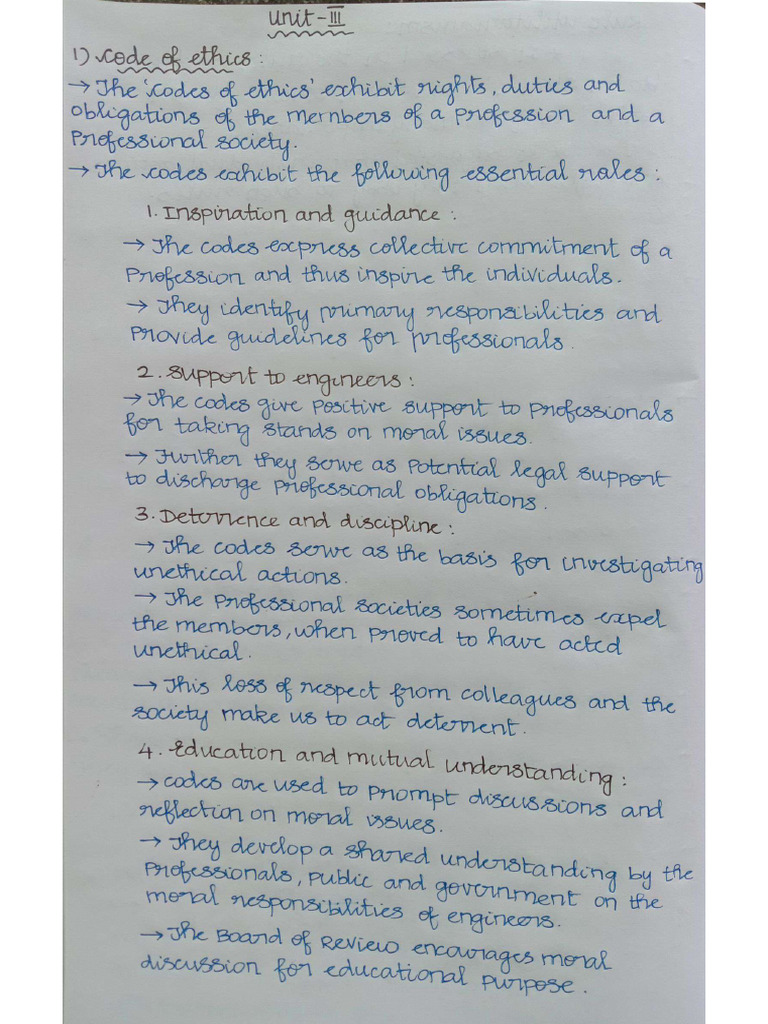 Unit-III
1) Code of ethics:
→ The 'codes of ethics' exhibit rights, duties and
obligations of the members of a profession and a
professional society.
→ The codes exhibit the following essential roles:
1. Inspiration and guidance:
→ The codes express collective commitment of a
profession and thus inspire the individuals.
→ They identify primary responsibilities and
provide guidelines for professionals.
2. Support to engineers:
→ The codes give positive support to professionals
for taking stands on moral issues.
→ Further they serve as potential legal support
to discharge professional obligations.
3. Deterrence and discipline:
→ The codes serve as the basis for investigating
unethical actions.
→ The professional societies sometimes expel
the members, when proved to have acted
unethical.
→ This loss of respect from colleagues and the
society make us to act deterrent.
4. Education and mutual understanding:
→ codes are used to prompt discussions and
reflection on moral issues.
→ They develop a shared understanding by the
professionals, public and government on the
moral responsibilities of engineers.
→ The Board of Review encourages moral
discussion for educational purpose.